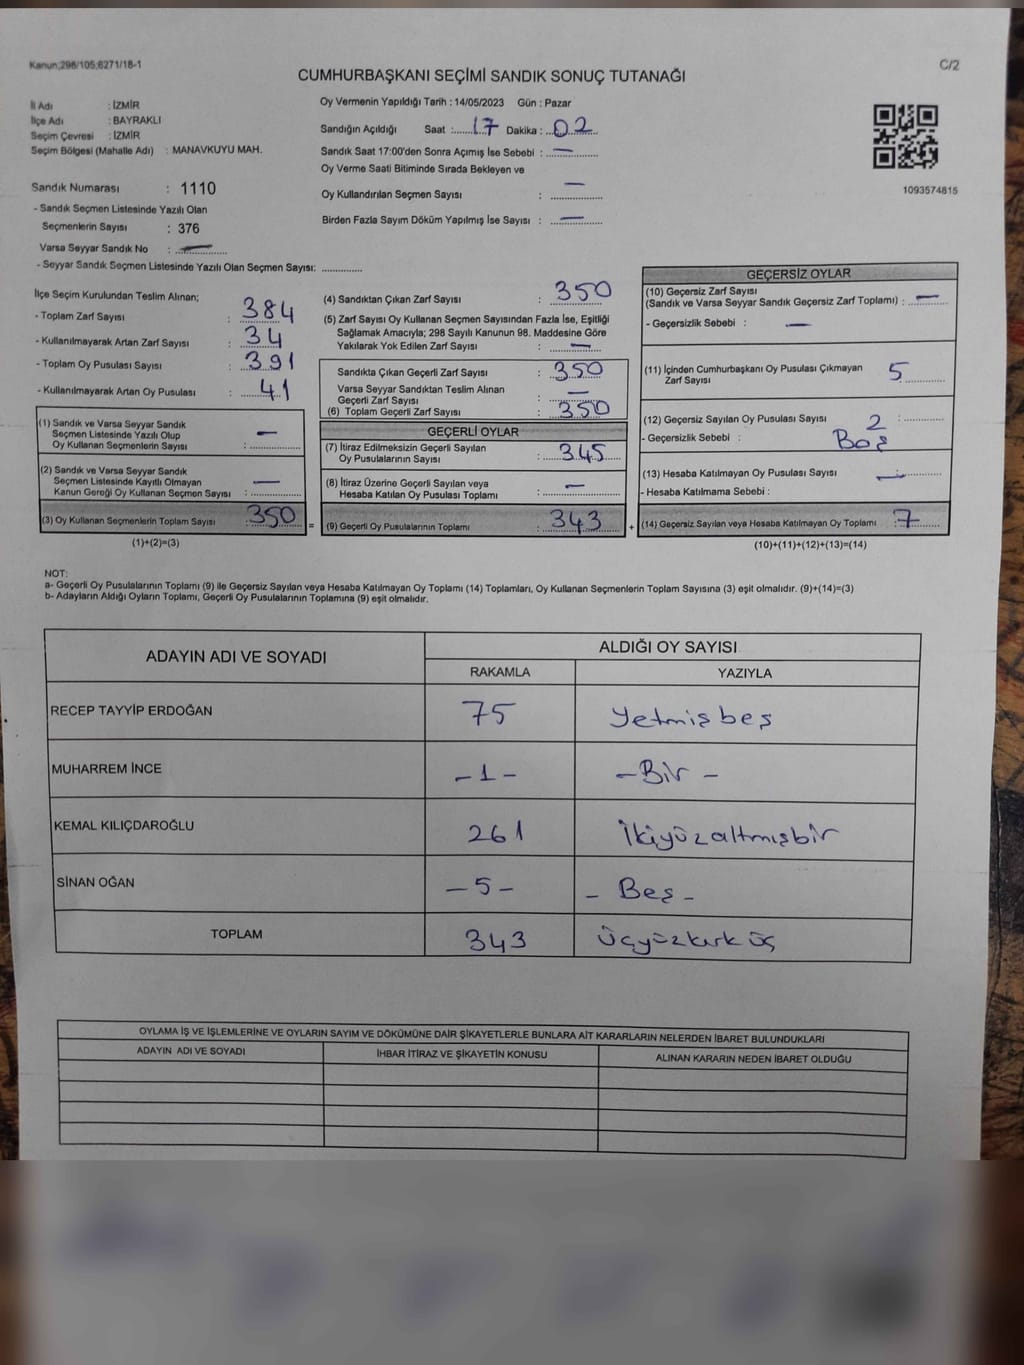 Kanun;298/105;6271/18-1
C/2
CUMHURBAŞKANI SEÇİMİ SANDIK SONUÇ TUTANAĞI
İl Adı : İZMİR
İlçe Adı : BAYRAKLI
Seçim Çevresi : İZMİR
Seçim Bölgesi (Mahalle Adı) : MANAVKUYU MAH.
Sandık Numarası : 1110
- Sandık Seçmen Listesinde Yazılı Olan
Seçmenlerin Sayısı : 376
Varsa Seyyar Sandık No : —
- Seyyar Sandık Seçmen Listesinde Yazılı Olan Seçmen Sayısı: ..............
Oy Vermenin Yapıldığı Tarih : 14/05/2023 Gün : Pazar
Sandığın Açıldığı Saat : 17 Dakika : 02
Sandık Saat 17:00'den Sonra Açımış İse Sebebi : —
Oy Verme Saati Bitiminde Sırada Bekleyen ve
Oy Kullandırılan Seçmen Sayısı : —
Birden Fazla Sayım Döküm Yapılmış İse Sayısı : —
1093574815
İlçe Seçim Kurulundan Teslim Alınan;
- Toplam Zarf Sayısı : 384
- Kullanılmayarak Artan Zarf Sayısı : 34
- Toplam Oy Pusulası Sayısı : 391
- Kullanılmayarak Artan Oy Pusulası : 41
(1) Sandık ve Varsa Seyyar Sandık
Seçmen Listesinde Yazılı Olup
Oy Kullanan Seçmenlerin Sayısı : —
(2) Sandık ve Varsa Seyyar Sandık
Seçmen Listesinde Kayıtlı Olmayan
Kanun Gereği Oy Kullanan Seçmen Sayısı : —
(3) Oy Kullanan Seçmenlerin Toplam Sayısı : 350
(1)+(2)=(3)
(4) Sandıktan Çıkan Zarf Sayısı : 350
(5) Zarf Sayısı Oy Kullanan Seçmen Sayısından Fazla İse, Eşitliği
Sağlamak Amacıyla; 298 Sayılı Kanunun 98. Maddesine Göre
Yakılarak Yok Edilen Zarf Sayısı : —
Sandıkta Çıkan Geçerli Zarf Sayısı : 350
Varsa Seyyar Sandıktan Teslim Alınan
Geçerli Zarf Sayısı : —
(6) Toplam Geçerli Zarf Sayısı : 350
GEÇERLİ OYLAR
(7) İtiraz Edilmeksizin Geçerli Sayılan
Oy Pusulalarının Sayısı : 345
(8) İtiraz Üzerine Geçerli Sayılan veya
Hesaba Katılan Oy Pusulası Toplamı : —
= (9) Geçerli Oy Pusulalarının Toplamı : 343
GEÇERSİZ OYLAR
(10) Geçersiz Zarf Sayısı
(Sandık ve Varsa Seyyar Sandık Geçersiz Zarf Toplamı) : —
- Geçersizlik Sebebi : —
(11) İçinden Cumhurbaşkanı Oy Pusulası Çıkmayan
Zarf Sayısı 5
(12) Geçersiz Sayılan Oy Pusulası Sayısı : 2
- Geçersizlik Sebebi : Boş
(13) Hesaba Katılmayan Oy Pusulası Sayısı : —
- Hesaba Katılmama Sebebi :
+ (14) Geçersiz Sayılan veya Hesaba Katılmayan Oy Toplamı : 7
(10)+(11)+(12)+(13)=(14)
NOT:
a- Geçerli Oy Pusulalarının Toplamı (9) ile Geçersiz Sayılan veya Hesaba Katılmayan Oy Toplamı (14) Toplamları, Oy Kullanan Seçmenlerin Toplam Sayısına (3) eşit olmalıdır. (9)+(14)=(3)
b- Adayların Aldığı Oyların Toplamı, Geçerli Oy Pusulalarının Toplamına (9) eşit olmalıdır.
ADAYIN ADI VE SOYADI
ALDIĞI OY SAYISI
RAKAMLA YAZIYLA
RECEP TAYYİP ERDOĞAN 75 Yetmişbeş
MUHARREM İNCE -1- -Bir-
KEMAL KILIÇDAROĞLU 261 İkiyüzaltmışbir
SİNAN OĞAN -5- -Beş-
TOPLAM 343 Üçyüzkırküç
OYLAMA İŞ VE İŞLEMLERİNE VE OYLARIN SAYIM VE DÖKÜMÜNE DAİR ŞİKAYETLERLE BUNLARA AİT KARARLARIN NELERDEN İBARET BULUNDUKLARI
ADAYIN ADI VE SOYADI İHBAR İTİRAZ VE ŞİKAYETİN KONUSU ALINAN KARARIN NEDEN İBARET OLDUĞU